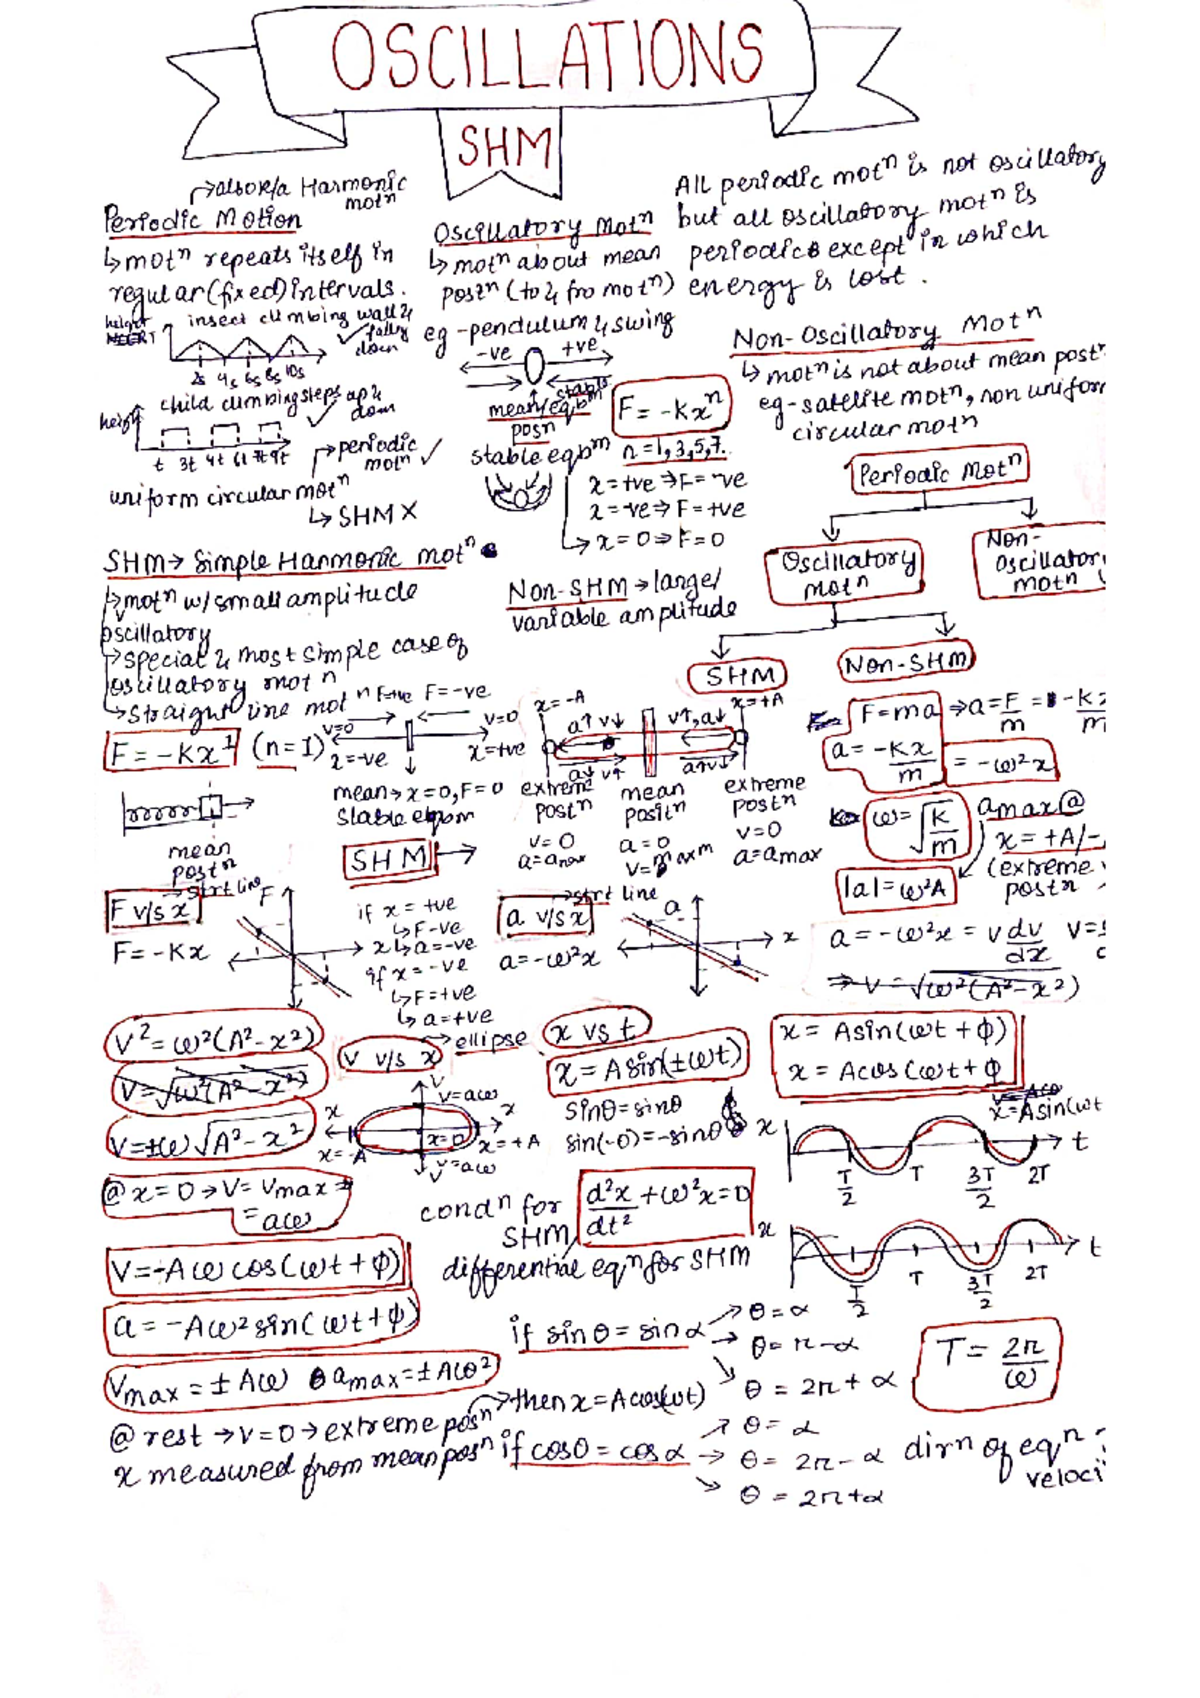 OSCILLATIONS
SHM
↱also k/a Harmonic motⁿ
Periodic Motion
↳motⁿ repeats itself in
regular(fixed)intervals.
height
insect climbing wall & falling down ✓
2s 4s 6s 8s 10s
child climbing steps up & down ✓
height
t 3t 4t 6t 7t 9t
uniform circular motⁿ
↱periodic motⁿ ✓
↳ SHM X
Oscillatory Motⁿ
↳motⁿ about mean
postⁿ (to & fro motⁿ)
eg -pendulum & swing
-ve +ve
mean/eqbm posn
stable
stable eqbᵐ
F = -Kxⁿ
n=1,3,5,7..
x=+ve⇒F=-ve
x=-ve⇒F=+ve
↳x=0⇒F=0
All periodic motⁿ is not oscillatory
but all oscillatory motⁿ is
periodic except in which
energy is lost.
Non-Oscillatory Motⁿ
↳motⁿ is not about mean post
eg-satelite motⁿ, non uniform
circular motn
Periodic Motⁿ
Oscillatory motⁿ
Non-oscillator motⁿ
SHM
Non-SHM
SHM→ Simple Harmonic motⁿ
↳motⁿ w/small amplitude
oscillatory
↳special & most simple case of
oscillatory motⁿ
↳straight line motⁿ
F = -Kx¹ (n=1)
F=+ve F=-ve
v=0 v=0
x=-ve x=+ve
mean→x=0, F=0
stable eqbm
Non-SHM→large/
variable amplitude
x=-A x=+A
a↑ v↓ v↑,a↓
a↓ v↑ a↑v↓
extreme postⁿ
v=0
a=amax
mean positⁿ
a=0
v=maxm
extreme postⁿ
v=0
a=amax
F=ma ⇒a=F/m = -K
m
a=-Kx/m = -ω²x
ω=√K/m
amax@
x=+A/-
(extreme
postn
|a|=ω²A
mean
postⁿ
SHM →
F v/s x →strt line
F=-Kx
F
x
if x=+ve
↳F-ve
↳a=-ve
if x=-ve
↳F=+ve
↳a=+ve
a v/s x →strt line
a=-ω²x
a
x
a=-ω²x = v dv/dx v=
⇒v=√ω²(A²-x²)
v²=ω²(A²-x²)
v=√ω²(A²-x²)
v=±ω√A²-x²
v v/s x →ellipse
v
v=aω
x x
x=-A x=0 x=+A
v=aω
v
x vs t
x=Asin(±ωt)
sinθ=sinθ
sin(-θ)=-sinθ
x = Asin(ωt+ϕ)
x = Acos(ωt+ϕ
x=Asin(ωt
x
T/2 T 3T/2 2T
t
@x=0→v=vmax
=aω
condⁿ for SHM
d²x/dt² +ω²x=0
differential eqn for SHM
x
T/2 T 3T/2 2T
t
v=-Aωcos(ωt+ϕ)
a=-Aω²sin(ωt+ϕ)
vmax=±Aω amax=±Aω²
if sinθ=sinα →θ=α
→ θ=π-α
→ θ=2π+α
T= 2π/ω
@rest→v=0→extreme posⁿ →then x=Acos(ωt)
x measured from mean posⁿ
if cosθ=cosα →θ=α
→ θ=2π-α
→ θ=2π+α
dirn of eqⁿ
veloci